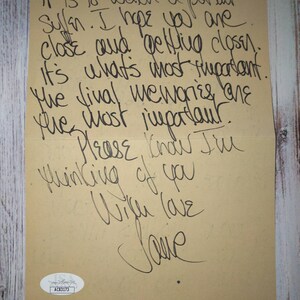 It is to watch a parent
suffer. I hope you are
close and getting closer.
It's what's most important.
The final memories are
the most important.
Please know I'm
thinking of you
With love
Janie